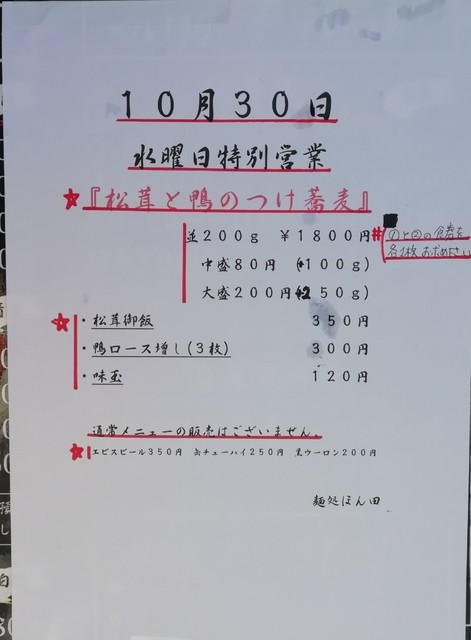 10月30日
水曜日特別営業
『松茸と鴨のつけ蕎麦』
並200g ¥1800円
①と②の食券を
各1枚お求め下さい
中盛80円 (+100g)
大盛200円(+250g)
・松茸御飯 350円
・鴨ロース増し(3枚) 300円
・味玉 120円
通常メニューの販売はございません。
エビスビール350円 缶チューハイ250円 黒ウーロン200円
麺処ほん田